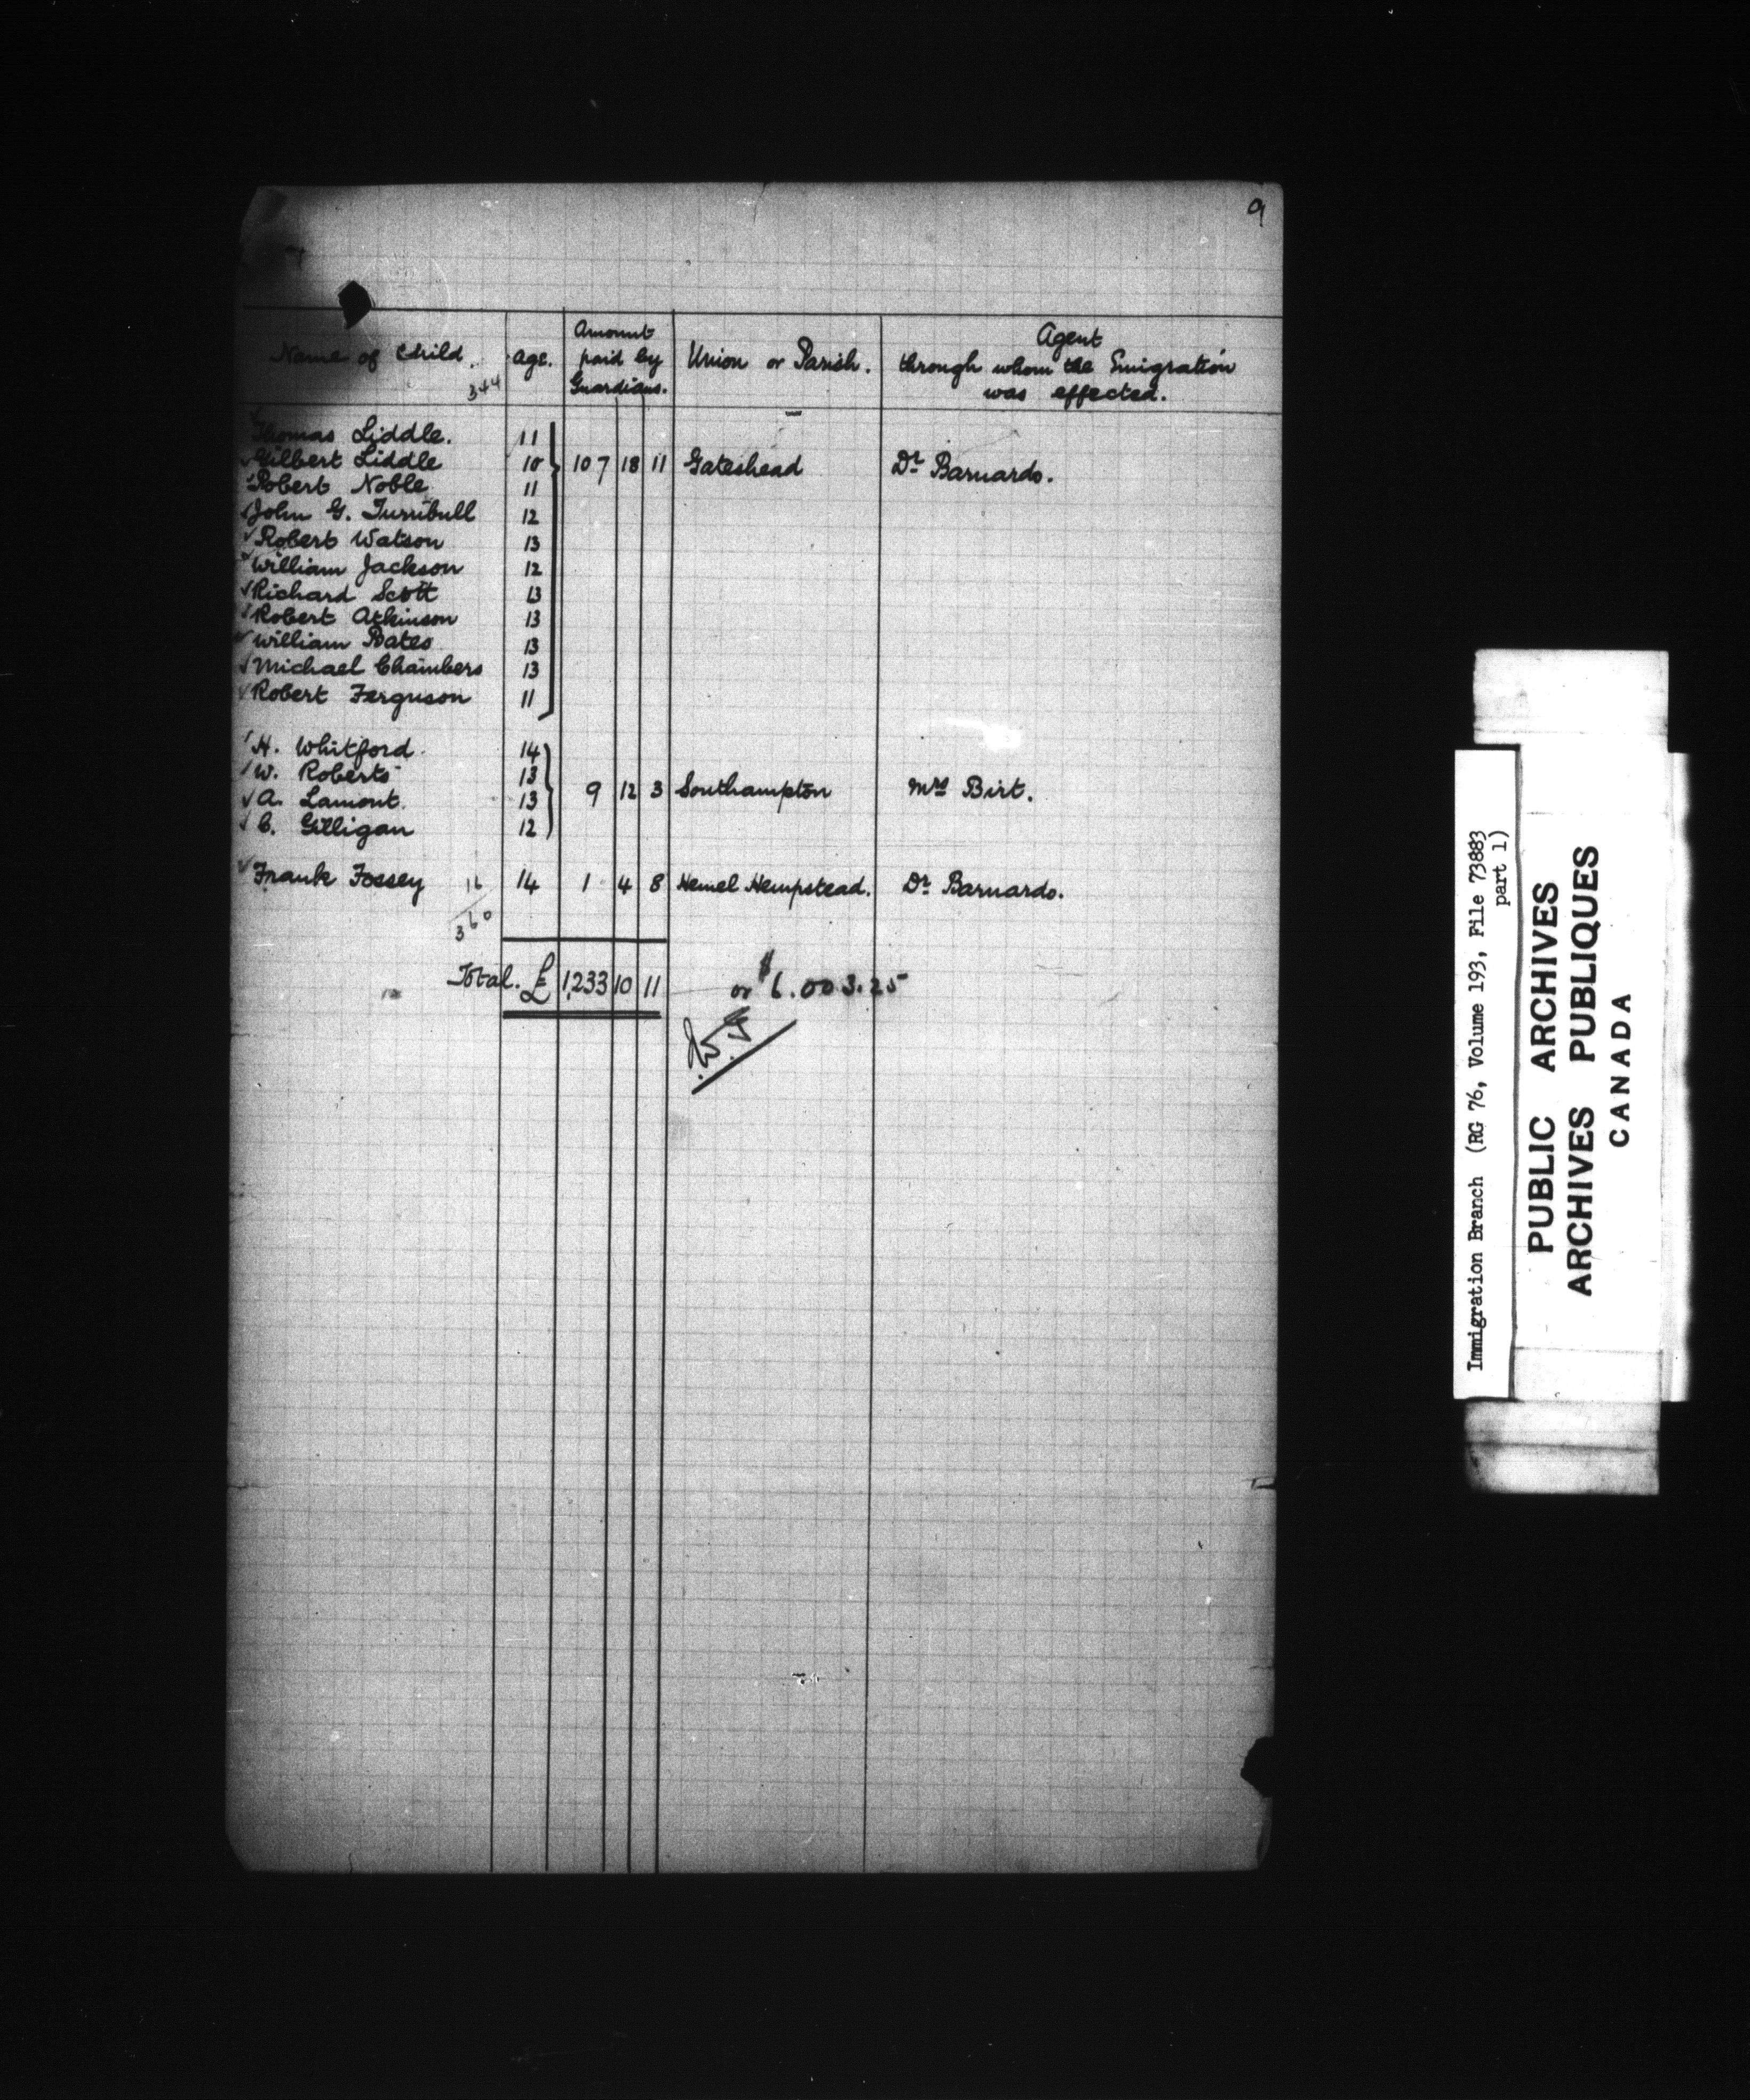 9
Name of Child. age. Amount paid by Guardians. Union or Parish. Agent through whom the Emigration was effected.
344
Thomas Liddle. 11
Gilbert Liddle 10 107 18 11 Gateshead Dr Barnardo.
Robert Noble 11
John G. Turnbull 12
Robert Watson 13
William Jackson 12
Richard Scott 13
Robert Atkinson 13
William Bates 13
Michael Chambers 13
Robert Ferguson 11
H. Whitford 14
W. Roberts 13
A. Lamont. 13 9 12 3 Southampton Mrs Birt.
C. Gilligan 12
Frank Fossey 16 14 1 4 8 Hemel Hempstead. Dr Barnardo.
360
Total. £ 1,233 10 11 or $6.003.25
Immigration Branch (RG 76, Volume 193, File 73883
part 1)
PUBLIC ARCHIVES
ARCHIVES PUBLIQUES
CANADA